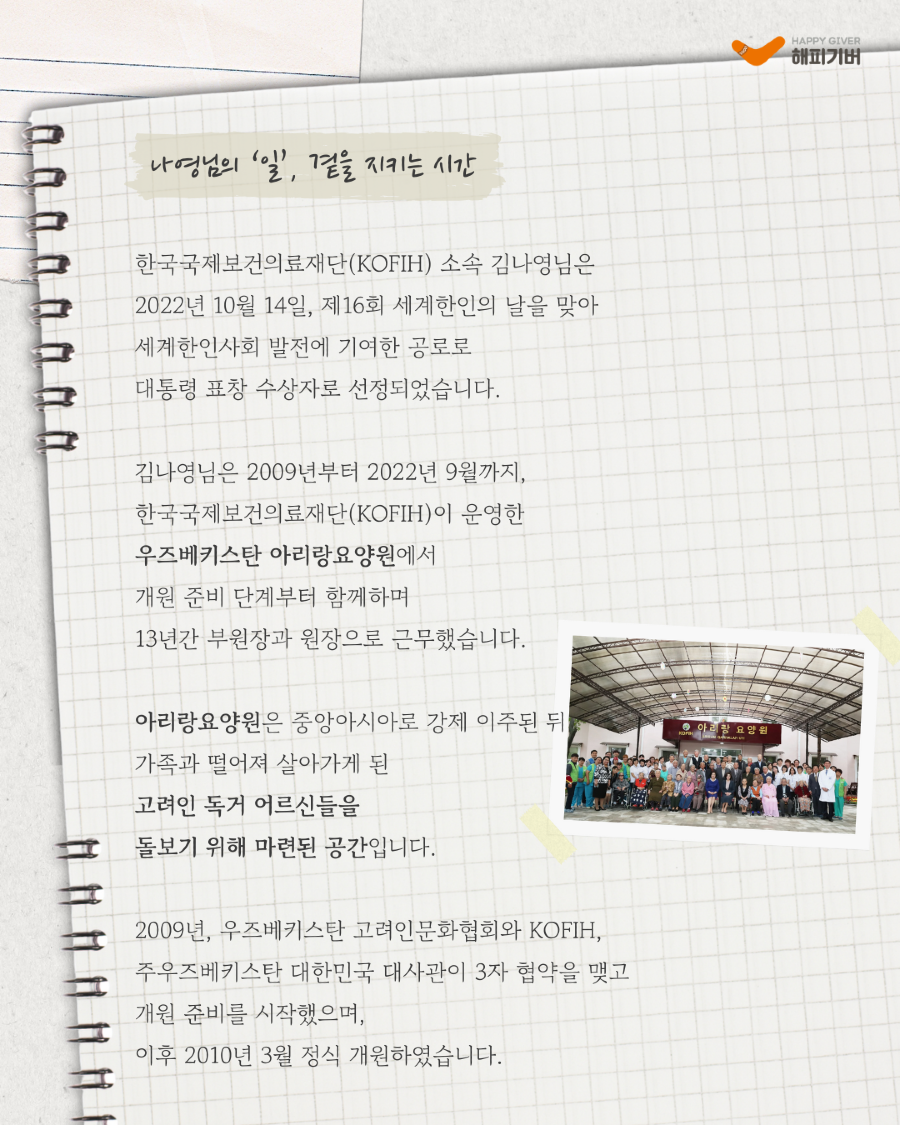 HAPPY GIVER
해피기버
나영님의 ‘일’, 곁을 지키는 시간
한국국제보건의료재단(KOFIH) 소속 김나영님은
2022년 10월 14일, 제16회 세계한인의 날을 맞아
세계한인사회 발전에 기여한 공로로
대통령 표창 수상자로 선정되었습니다.
김나영님은 2009년부터 2022년 9월까지,
한국국제보건의료재단(KOFIH)이 운영한
우즈베키스탄 아리랑요양원에서
개원 준비 단계부터 함께하며
13년간 부원장과 원장으로 근무했습니다.
아리랑요양원은 중앙아시아로 강제 이주된 뒤
가족과 떨어져 살아가게 된
고려인 독거 어르신들을
돌보기 위해 마련된 공간입니다.
KOFIH 아리랑 요양원
2009년, 우즈베키스탄 고려인문화협회와 KOFIH,
주우즈베키스탄 대한민국 대사관이 3자 협약을 맺고
개원 준비를 시작했으며,
이후 2010년 3월 정식 개원하였습니다.